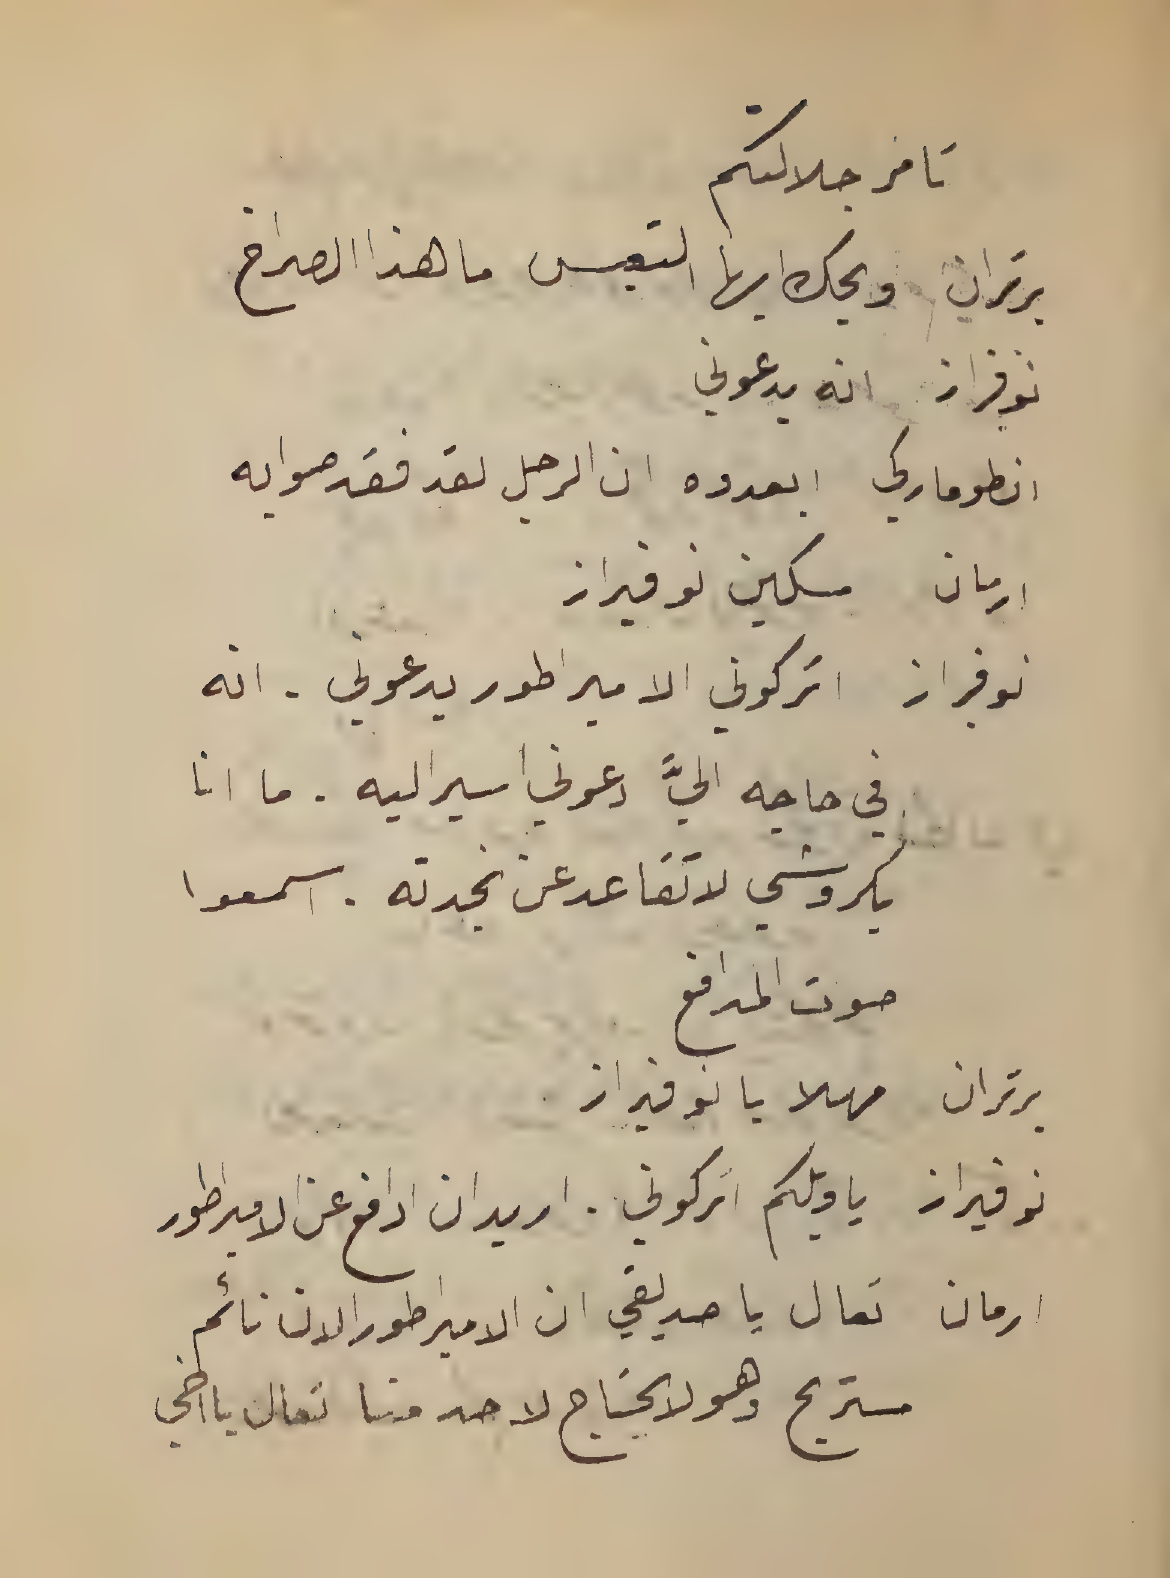 تامر جلالتكم
برتران ويحك ايها التعيس ما هذا الصراخ
نوفراز انه يدعوني
انطوماركي ابعدوه ان الرجل لقد فقد صوابه
ارمان مسكين نوفيراز
نوفيراز اتركوني الامبراطور يدعوني . انه
في حاجه اليَّ دعوني اسير اليه . ما انا
لاتقاعد عن نجدته . اسمعوا
صوت المدافع
برتران مهلا يا نوفيراز
نوفيراز يا ويلكم اتركوني . اريد ان ادافع عن الامبراطور
ارمان تعال يا صديقي ان الامبراطور الان نائم
مستريح وهو لا يحتاج لاحد منا تعال يا اخي